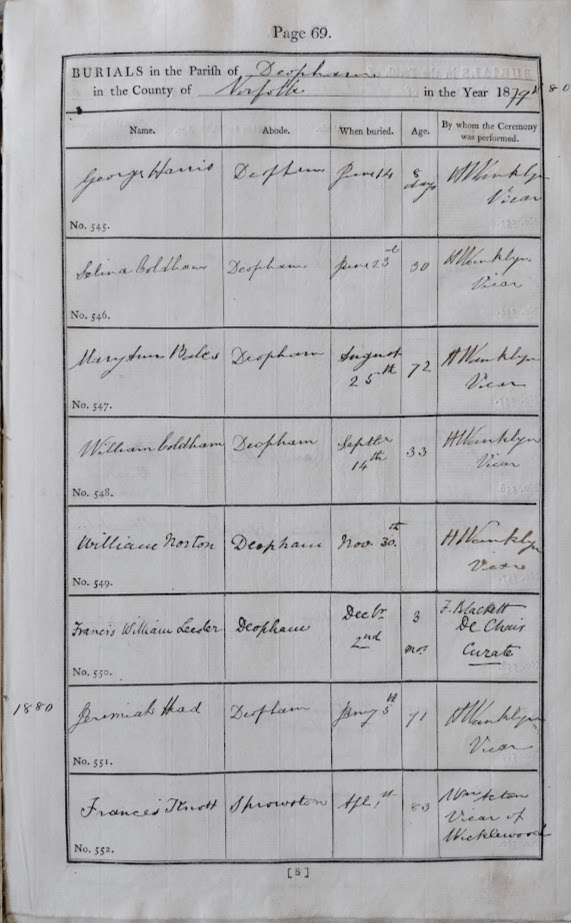 Page 69.
BURIALS in the Parish of Deopham
in the County of Norfolk in the Year 1879 & 80
Name. Abode. When buried. Age. By whom the Ceremony was performed.
George Harris Deopham June 14 8 days H Winklyn Vicar
No. 545.
Selina Coldham Deopham June 23 30 H Winklyn Vicar
No. 546.
Mary Ann Bales Deopham August 25th 72 H Winklyn Vicar
No. 547.
William Coldham Deopham Septbr 14th 33 H Winklyn Vicar
No. 548.
William Norton Deopham Nov. 30th H Winklyn Vicar
No. 549.
Francis William Leeder Deopham Decbr 2nd 3 mos F. Blackett De Chair Curate
No. 550.
1880 Jeremiah Head Deopham Jany 5th 71 H Winklyn Vicar
No. 551.
Frances Knott Sprowston Apl 1st 83 Wm Acton Vicar of Wicklewood
No. 552.
[S]